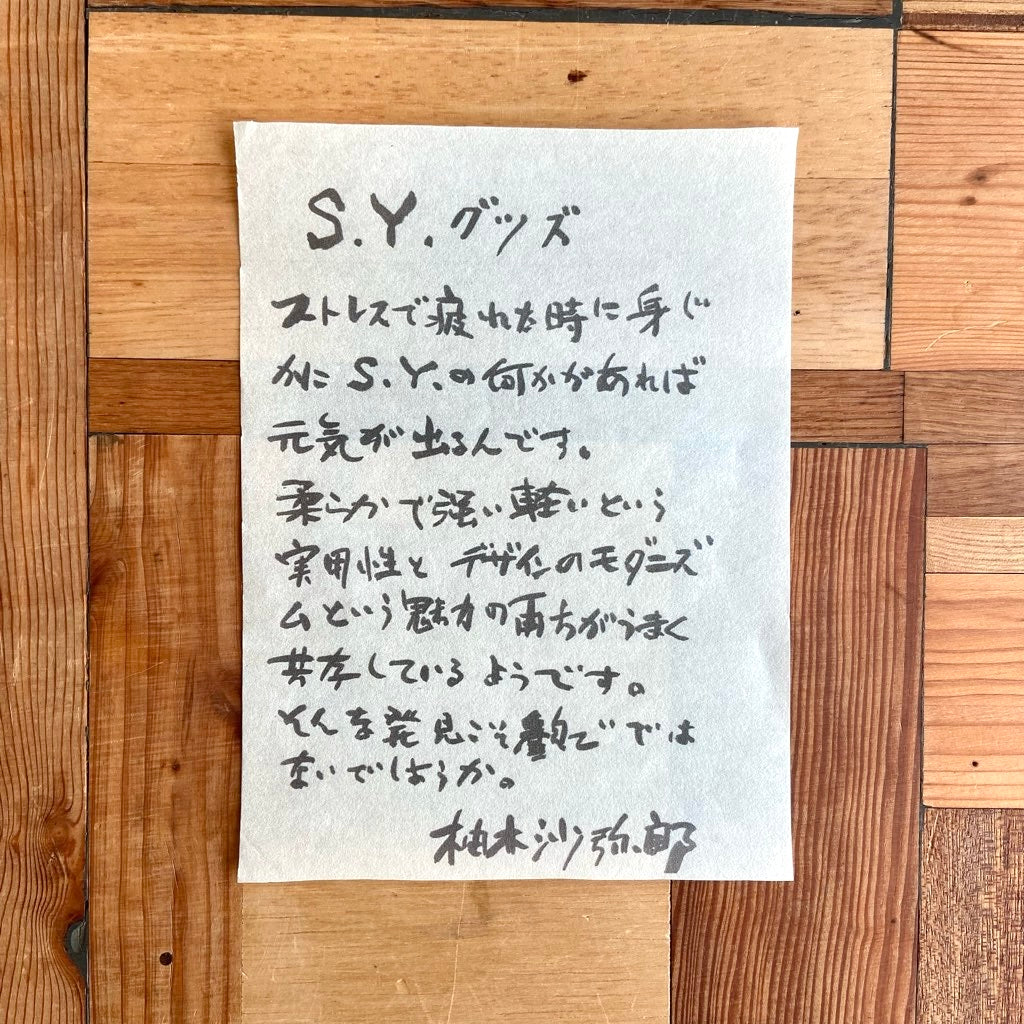 S.Y.グッズ
ストレスで疲れた時に身ぢ
かに S.Y.の何かがあれば
元気が出るんです。
柔らかで強い軽いという
実用性と デザインのモダニズ
ムという魅力の両方がうまく
共存しているようです。
そんな発見こそ でては
ないでしょうか。
柚木沙弥郎